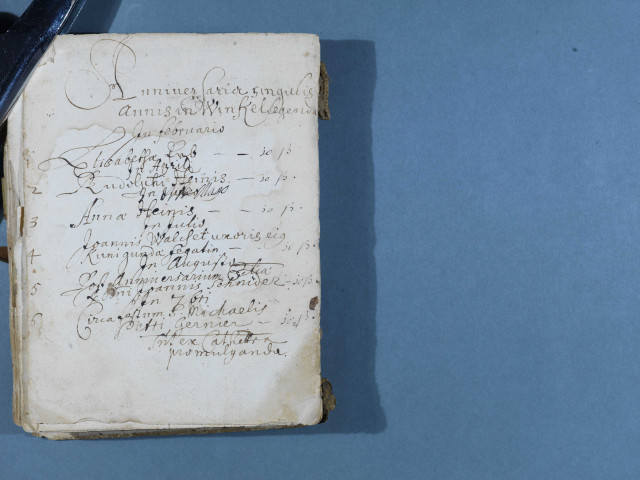 Anniversaria singulis
annis in Winkel legenda
In februario
1 Elisabetha Erb — — 10 ß.
In Aprili
2 Rudolphi Heinis — 10 ß.
In
3 Anna Heinis — — 10 ß.
In Julio
Joannis Walch et uxoris eig
4 Kunigunda — 10 ß.
In Augusto
5 Anniversarium
Joannis Schnider 10 ß.
In 7bri
6 Circa festum S. Michaelis
Petri Gernier — 10 ß.
Int ex Cathedra
promulganda.